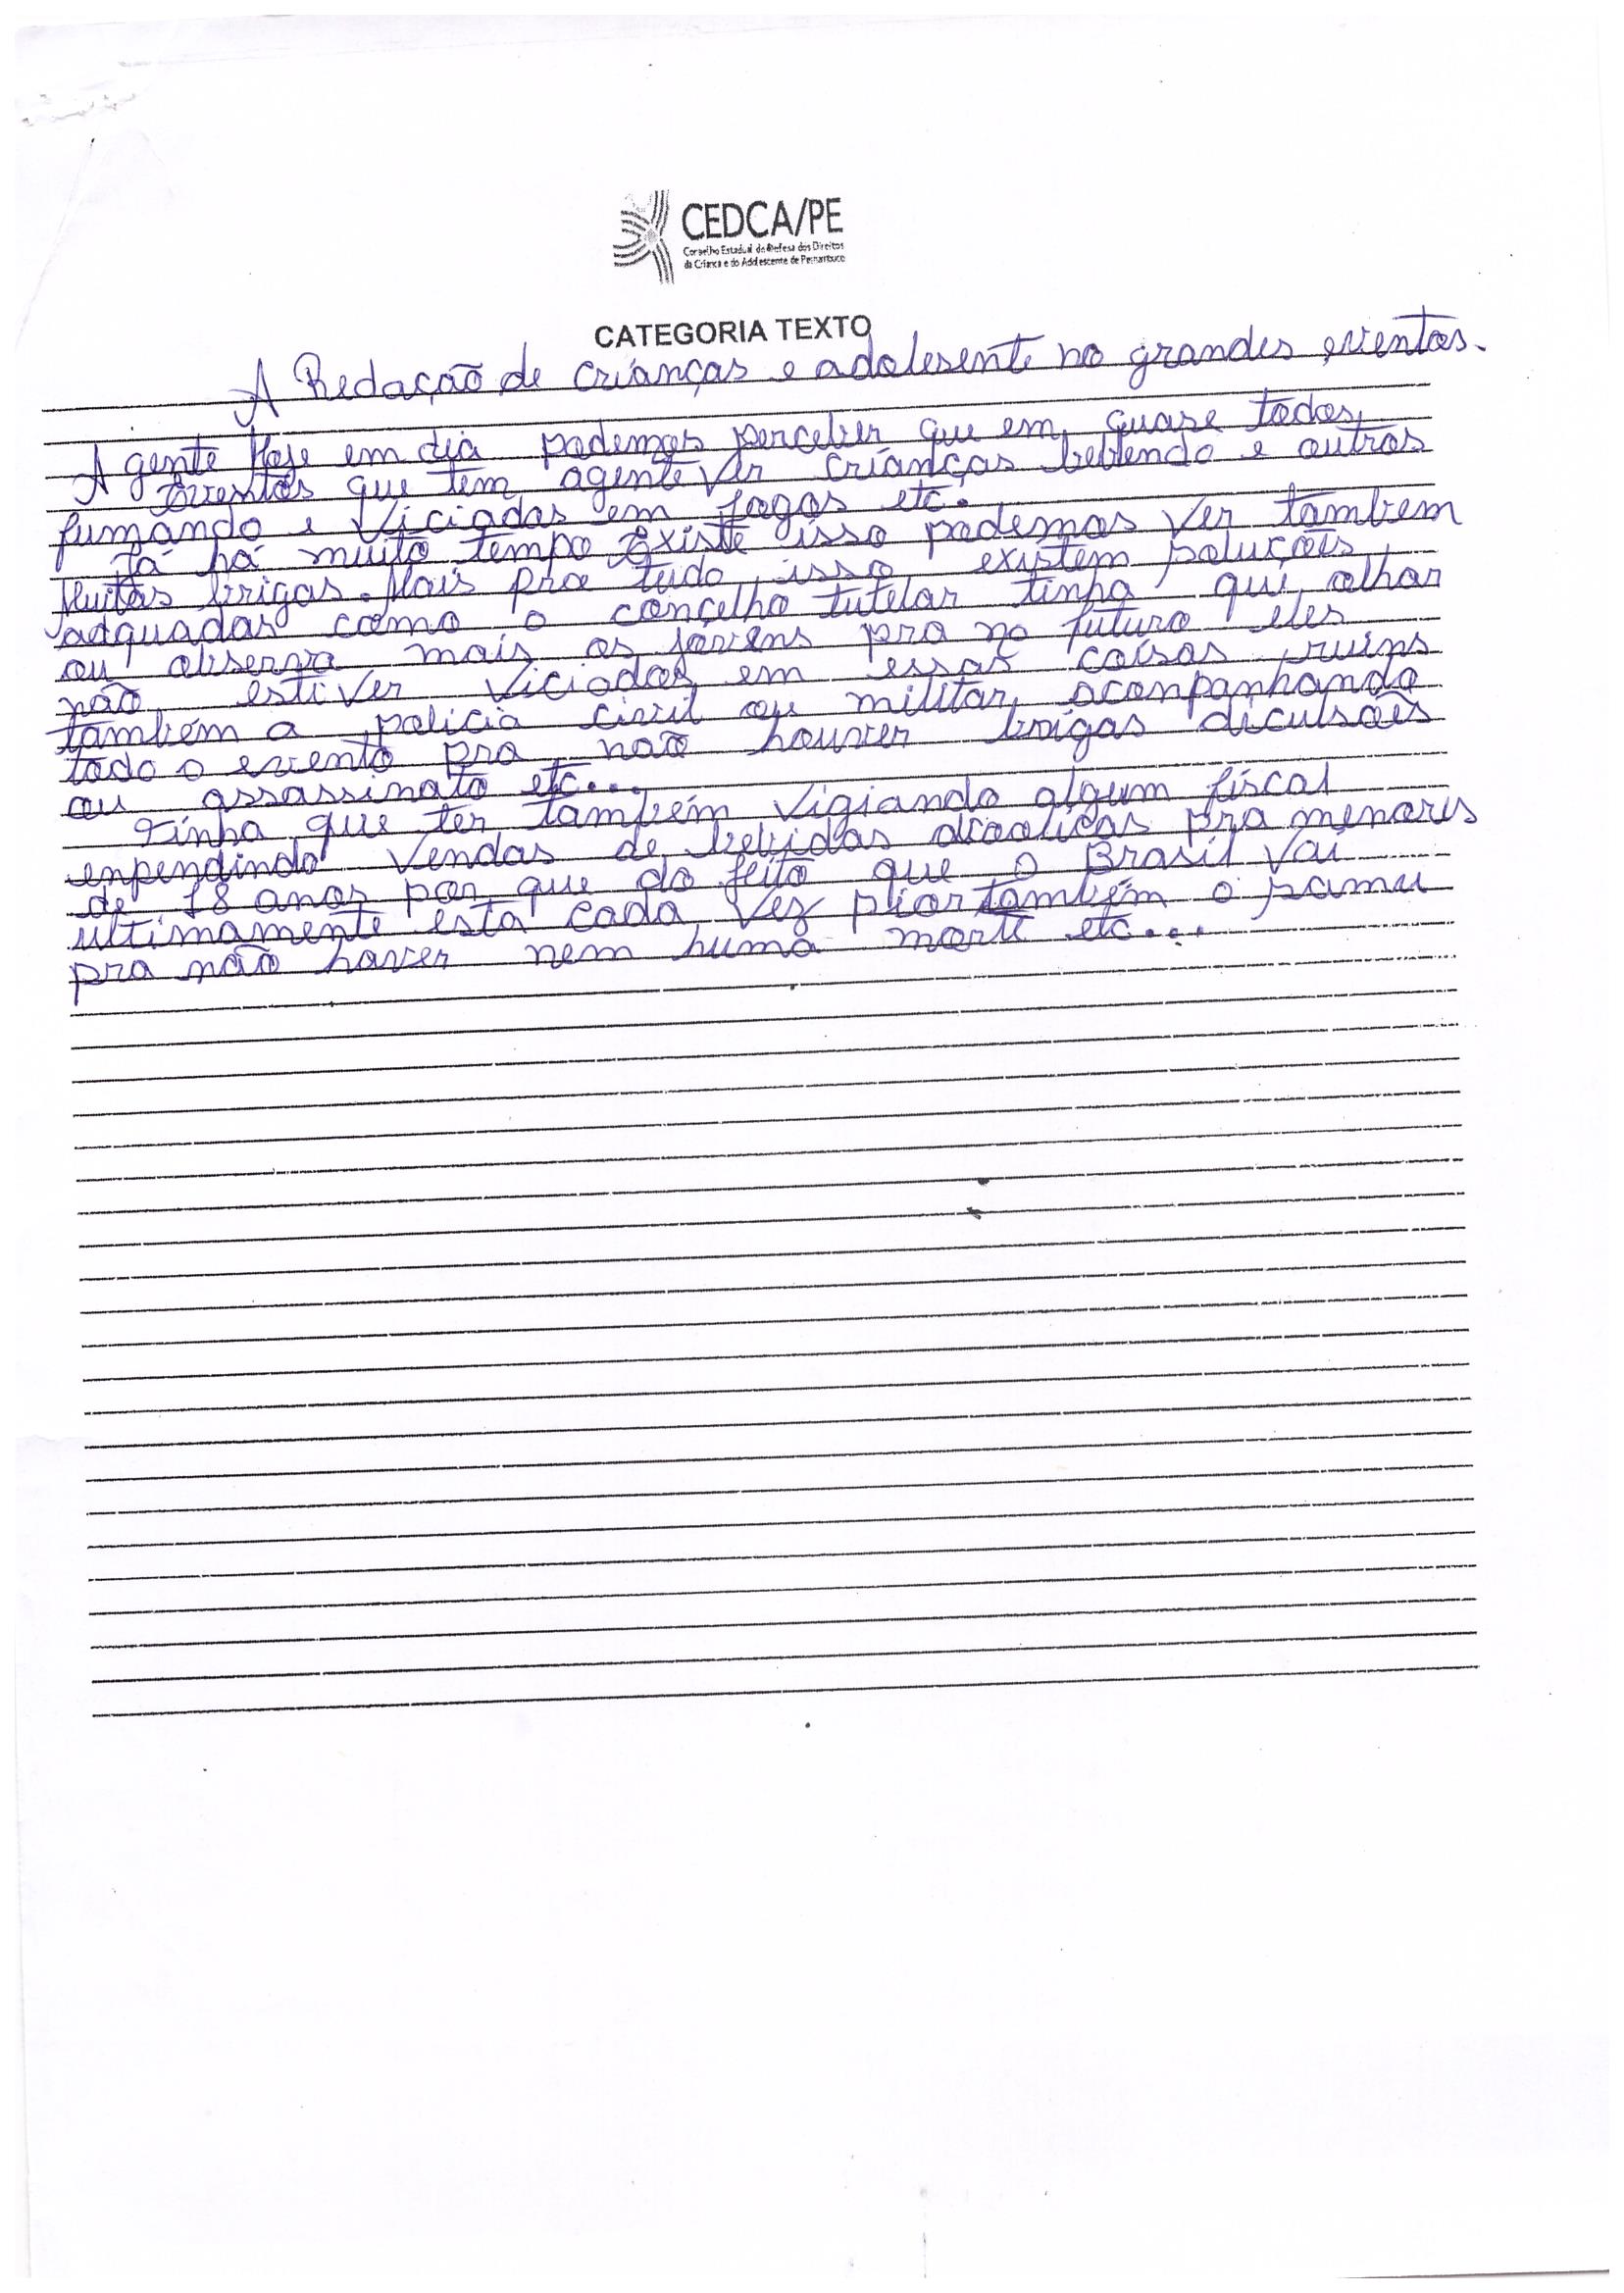 CEDCA/PE
Conselho Estadual de Defesa dos Direitos
da Criança e do Adolescente de Pernambuco
CATEGORIA TEXTO
A Redação de crianças e adolesente no grandes eventos.
A gente Hoje em dia podemos perceber que em quase todos
Eventos que tem agente ver crianças bebendo e outros
fumando e Viciados em jogos etc.
Já há muito tempo Existe isso podemos ver tambem
Muitas brigas. Mais pra tudo isso existem soluções
adquadas como o concelho tutelar tinha que olhar
ou observa mais os jovens pra no futuro eles
não estiver viciados em essas coisas ruins
também a policia civil ou militar aconpanhando
todo o evento pra não houver brigas diculsões
ou assassinato etc...
Tinha que ter também vigiando algum fiscal
enpendindo vendas de bebidas alcoolicas pra menores
de 18 anos por que do feito que o Brasil vai
ultimamente esta cada vez pior também o samu
pra não haver nem huma morte etc...